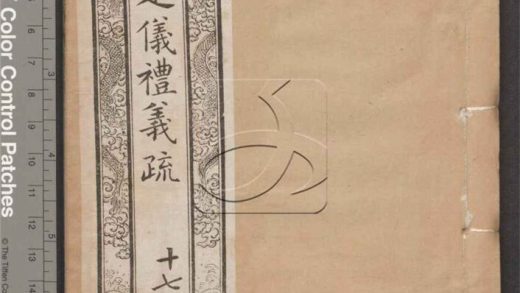 定儀禮義疏
十七
Color Control Patches
© The Tiffen Co
3
6
7
8
9
10
4
11
12
13
5
14